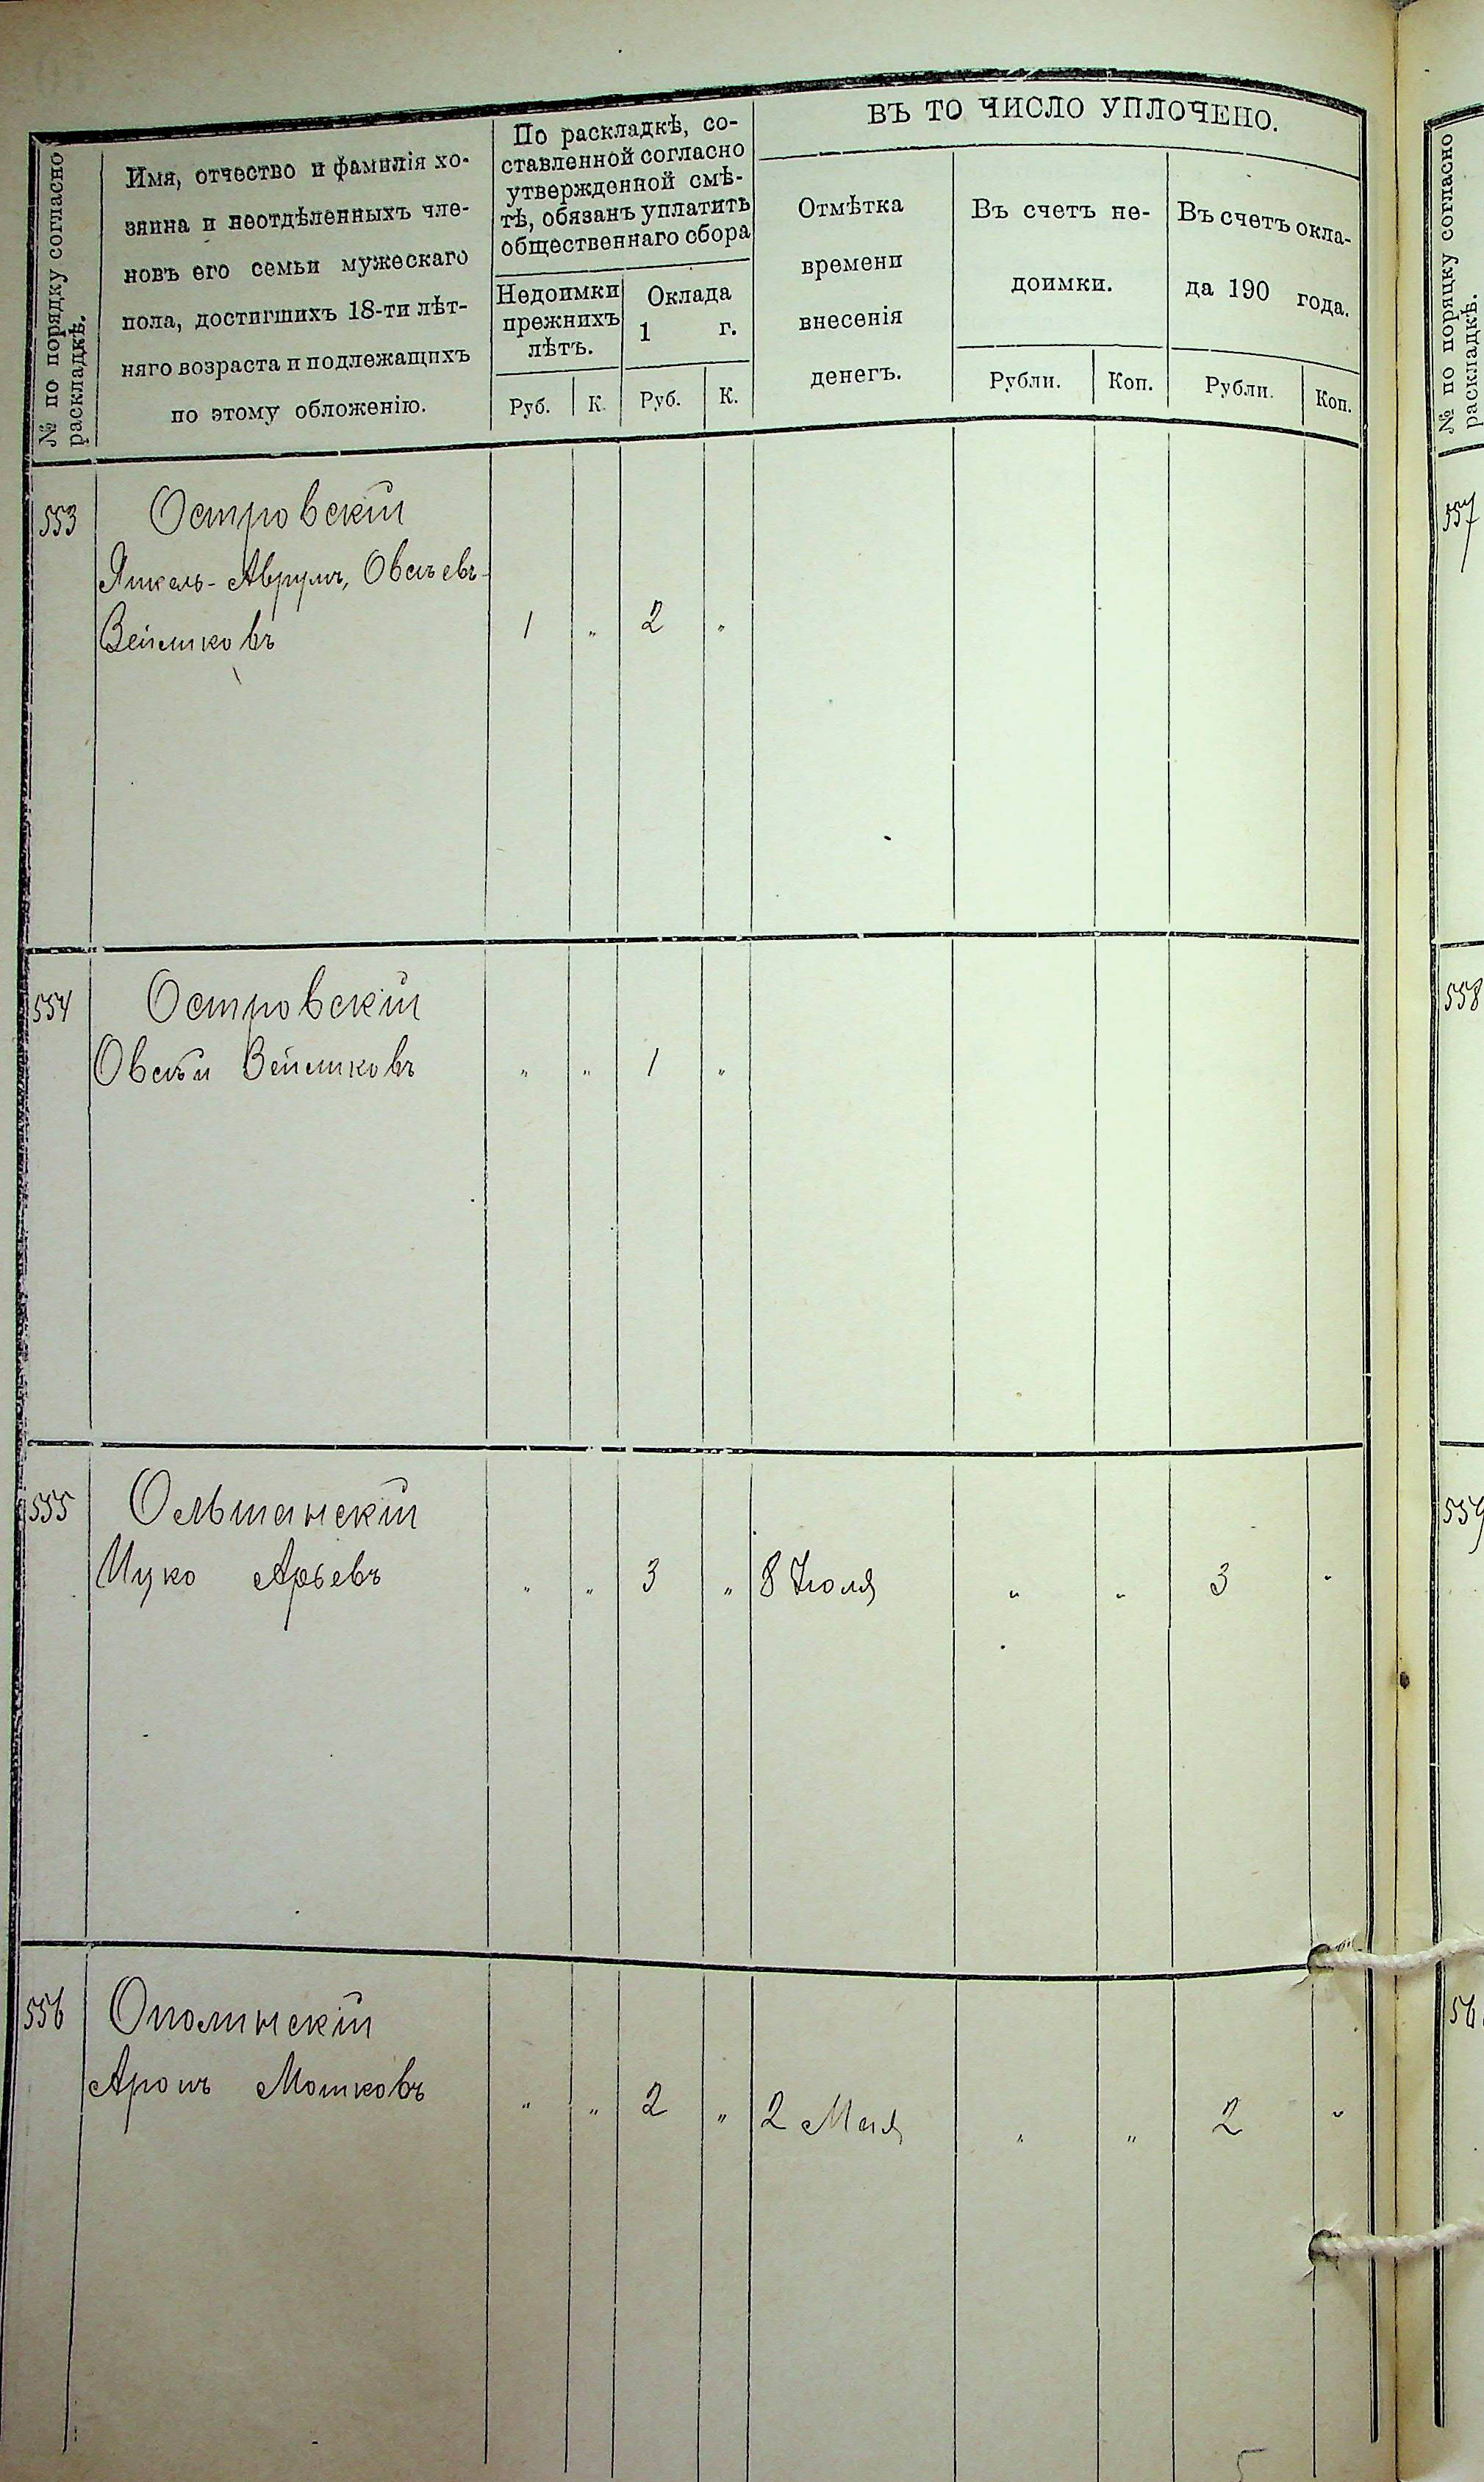 № по порядку согласно
раскладкѣ.
Имя, отчество и фамилія хо-
зяина и неотдѣленныхъ чле-
новъ его семьи мужескаго
пола, достигшихъ 18-ти лѣт-
няго возраста и подлежащихъ
по этому обложенію.
По раскладкѣ, со-
ставленной согласно
утвержденной смѣ-
тѣ, обязанъ уплатить
общественнаго сбора
Недоимки
прежнихъ
лѣтъ.
Оклада
1 г.
Руб. К. Руб. К.
ВЪ ТО ЧИСЛО УПЛОЧЕНО.
Отмѣтка
времени
внесенія
денегъ.
Въ счетъ не-
доимки.
Въ счетъ окла-
да 190 года.
Рубли. Коп. Рубли. Коп.
553 Островскій
Янкель-Аврумъ, Овсѣевъ-
Вейлковъ 1 „ 2 „
554 Островскій
Овсѣй „ „ 1 „
555 Ольшанскій
Ицко Арьевъ „ „ 3 „ 8 Іюля „ „ 3 „
556 Ополинскій
Аронъ Мошковъ „ „ 2 „ 2 Мая „ „ 2 „
№ по порядку согласно
раскладкѣ.
557
558
559